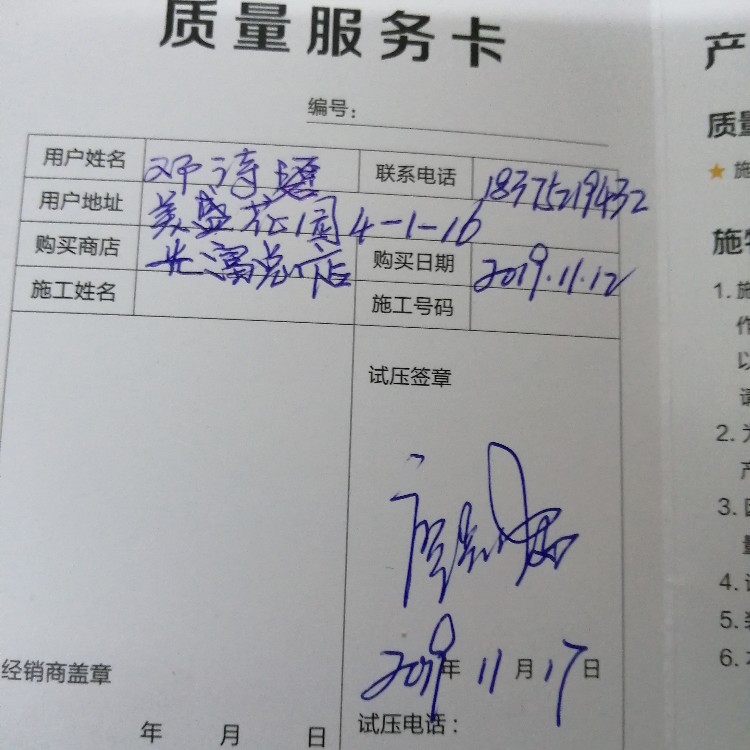 质量服务卡
编号：
用户姓名 邓诗 联系电话 18375219432
用户地址 美盛花园4-1-16
购买商店 总店 购买日期 2019.11.12
施工姓名 施工号码
试压签章
2019年11月17日
经销商盖章
年 月 日
试压电话：
产
质量
★ 施
施
1. 施
作
以
请
2. 为
产
3.
量
4.
5.
6.